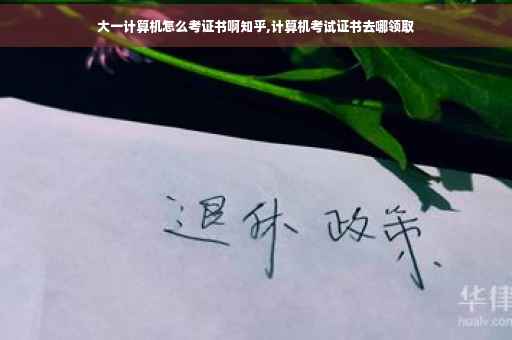 大一计算机怎么考证书啊知乎,计算机考试证书去哪领取
退休 政策
华律
hualv.com